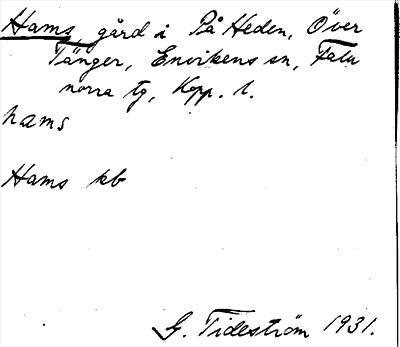 Hams, gård i På Heden, Över
Tänger, Envikens sn, Falu
norra tg, Kopp. l.
hams
Hams kb
G. Tideström 1931.